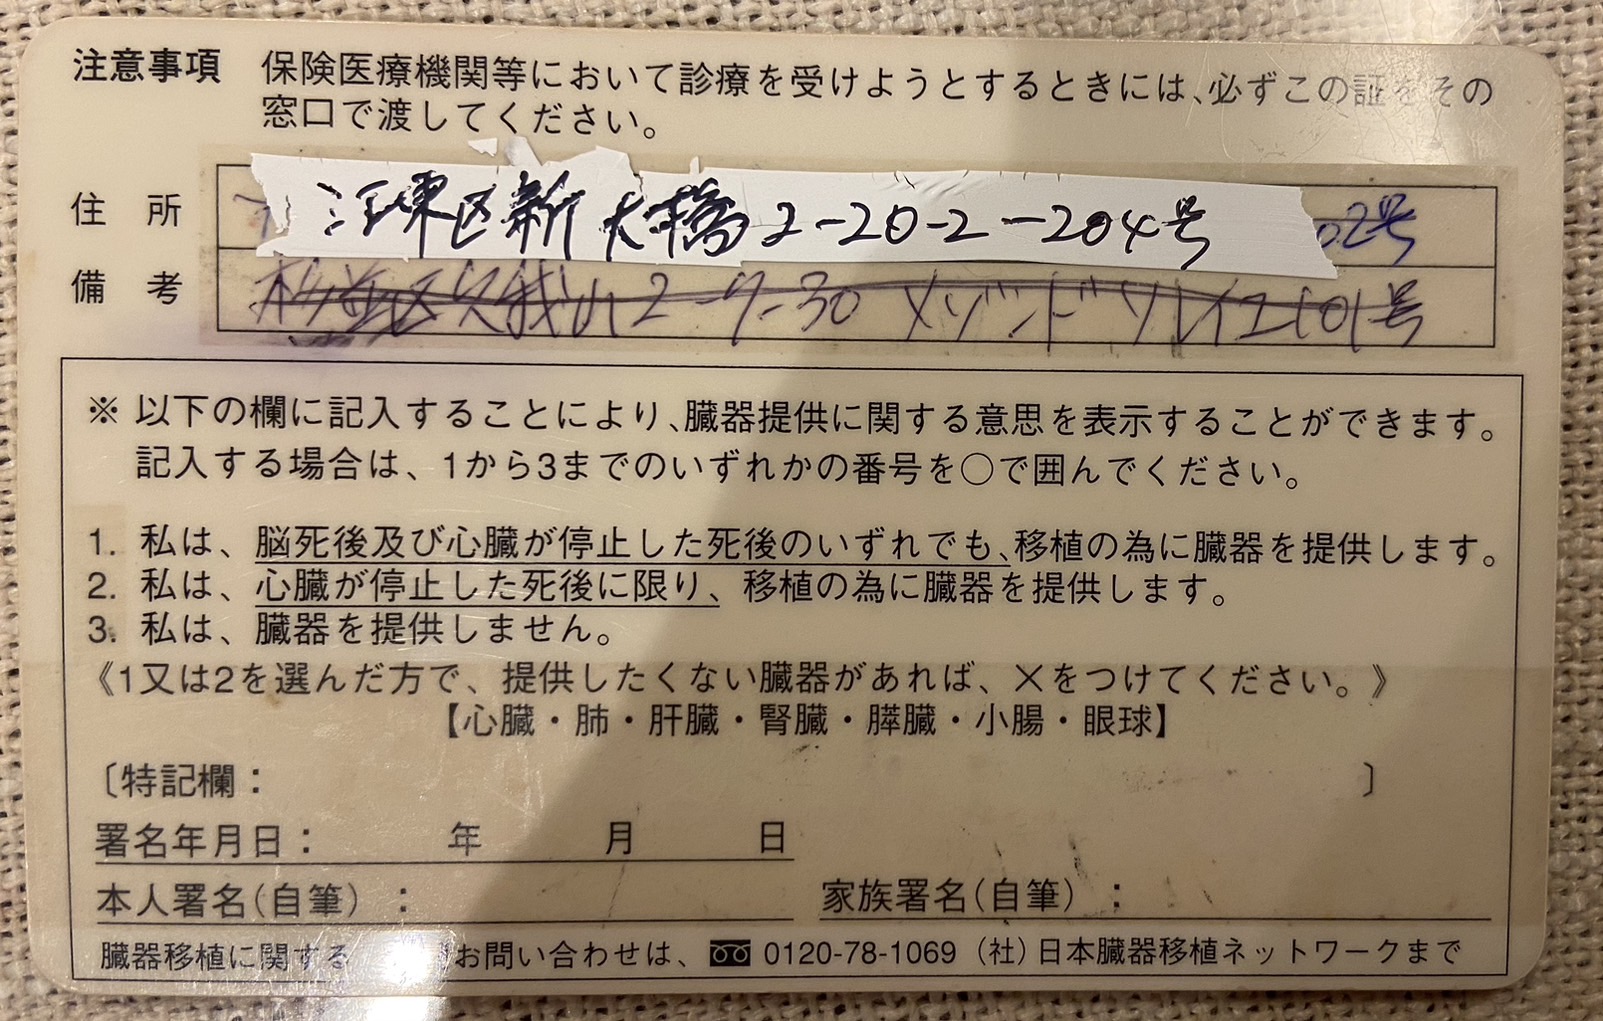 注意事項 保険医療機関等において診療を受けようとするときには、必ずこの証をその
窓口で渡してください。
住所 江東区新大橋2-20-2-204号 02号
備考 杉並区久我山2-9-30 メゾンドソレイユ101号
※ 以下の欄に記入することにより、臓器提供に関する意思を表示することができます。
記入する場合は、1から3までのいずれかの番号を○で囲んでください。
1. 私は、脳死後及び心臓が停止した死後のいずれでも、移植の為に臓器を提供します。
2. 私は、心臓が停止した死後に限り、移植の為に臓器を提供します。
3. 私は、臓器を提供しません。
《1又は2を選んだ方で、提供したくない臓器があれば、×をつけてください。》
【心臓・肺・肝臓・腎臓・膵臓・小腸・眼球】
〔特記欄： 〕
署名年月日： 年 月 日
本人署名(自筆)： 家族署名(自筆)：
臓器移植に関する お問い合わせは、 0120-78-1069 (社)日本臓器移植ネットワークまで